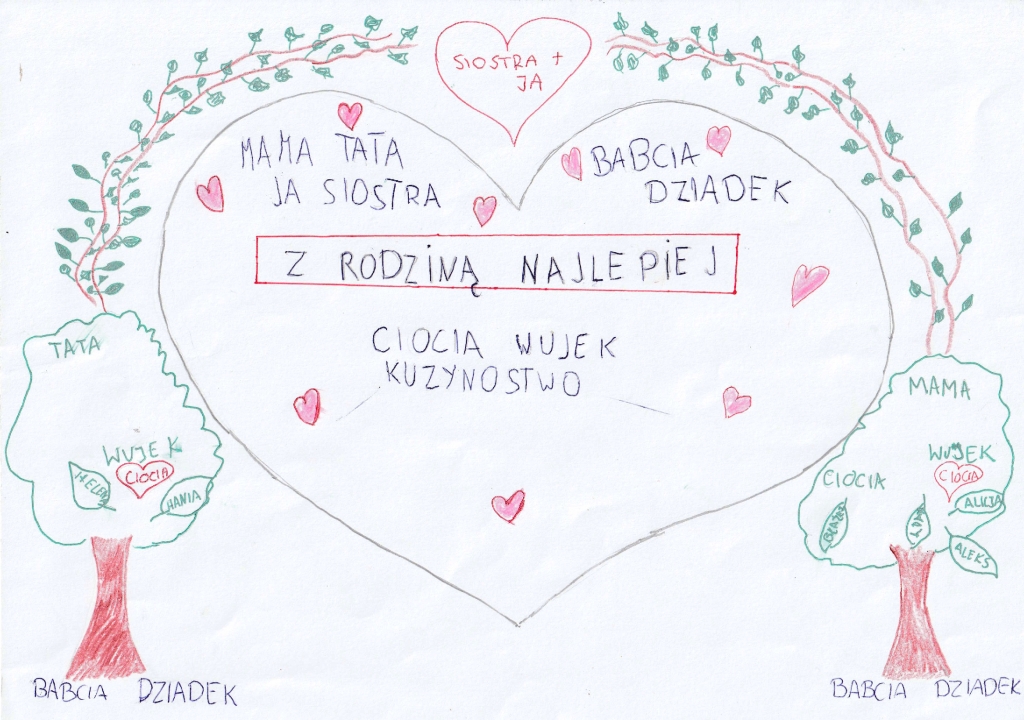 SIOSTRA +
JA
MAMA TATA
JA SIOSTRA
BABCIA
DZIADEK
Z RODZINĄ NAJLEPIEJ
CIOCIA WUJEK
KUZYNOSTWO
TATA
WUJEK
CIOCIA
HELENA
HANIA
BABCIA DZIADEK
MAMA
WUJEK
CIOCIA
CIOCIA
ALICJA
BŁAŻEJ
ALEKS
BABCIA DZIADEK